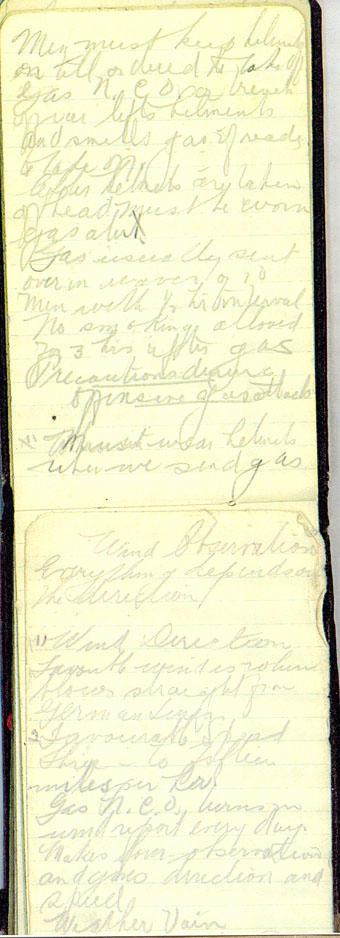 Men must keep helmets
on till ordered to take off
gas N.C.O. or trench
officer lifts helments
and smells gas if ready
to take off
When helmets are taken
off head must be worn
gas alert
Gas usually sent
over in waves of 10
Men with ½ hr interval
No smoking allowed
for 3 hrs after gas
Precautions during
offensive gas attack
1 Men must wear helmets
when we send gas
Wind Observation
Everything depends on
the direction
1 Wind Direction
Favourable wind is when
blows straight from
German lines
2 Favourable speed
three - to
miles per hr
Gas N.C.O. turns in
wind report every day
Makes four observation
and gives direction and
speed
Weather Vain